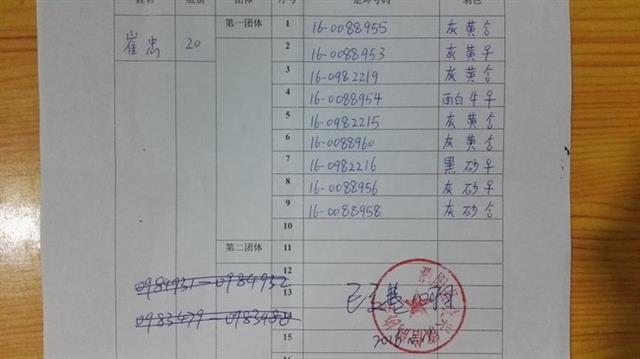 姓名 组别 团体 足环号码 羽色
崔忠 20 第一团体 1 16-0088955 灰黄合
2 16-0088953 灰黄平
3 16-0982219 灰黄合
4 16-0088954 面白牛平
5 16-0982215 灰黄合
6 16-0088960 灰黄合
7 16-0982216 黑砂平
8 16-0088956 灰砂平
9 16-0088958 灰砂合
10
第二团体 11
12
0984931-0984932
13
0983479-09834
15
16